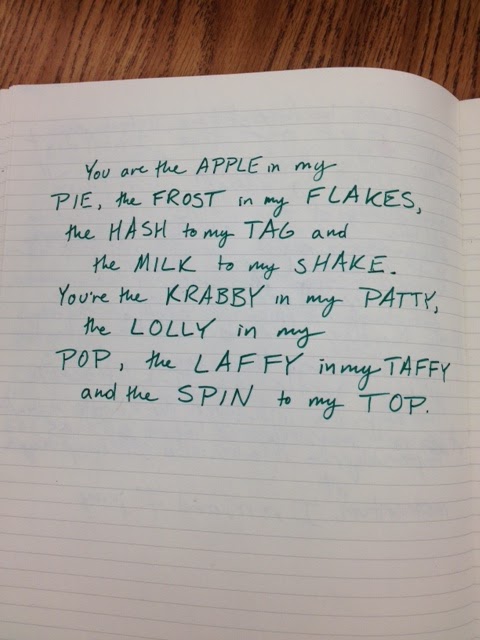 You are the APPLE in my
PIE, the FROST in my FLAKES,
the HASH to my TAG and
the MILK to my SHAKE.
You're the KRABBY in my PATTY,
the LOLLY in my
POP, the LAFFY in my TAFFY
and the SPIN to my TOP.